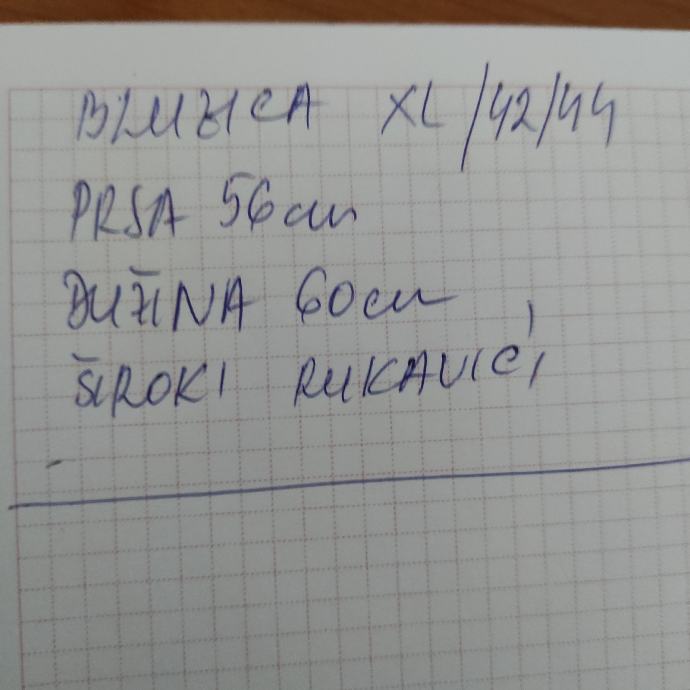 BLUZICA XL/42/44
PRSA 56cm
DUŽINA 60cm
ŠIROKI RUKAVIĆI